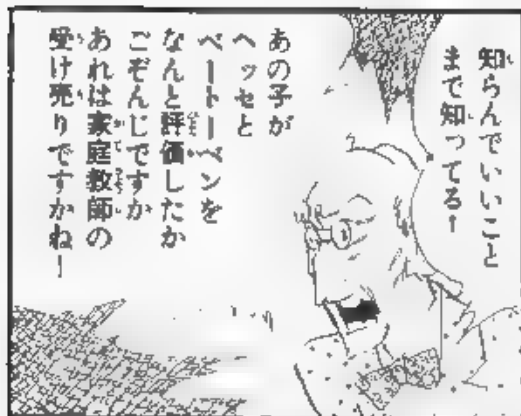 知らんでいいこと
まで知ってる!
あの子が
ヘッセと
ベートーベンを
なんと評価したか
ごぞんじですか
あれは家庭教師の
受け売りですかね!